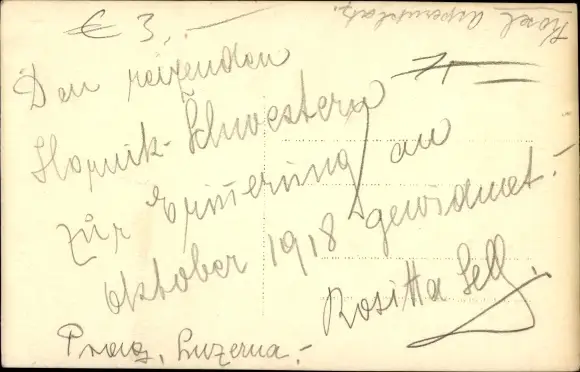 € 3,-
Den reizenden
Hornik-Schwestern
zur Erinnerung an
Oktober 1918 gewidmet.-
Rositta Sell.
Prag, Luzerna.-
Hotel